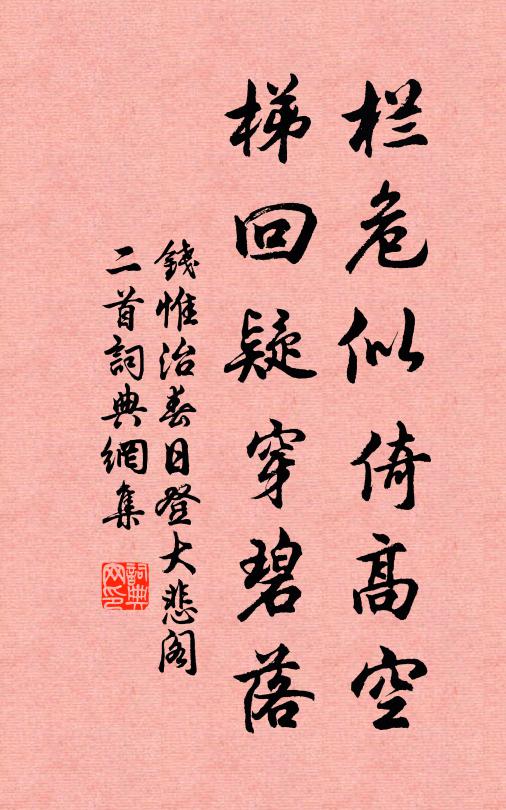 栏危似倚高空
梯回疑穿碧落
錢惟治春日登大悲阁
二首詞典網集
詞典
网印